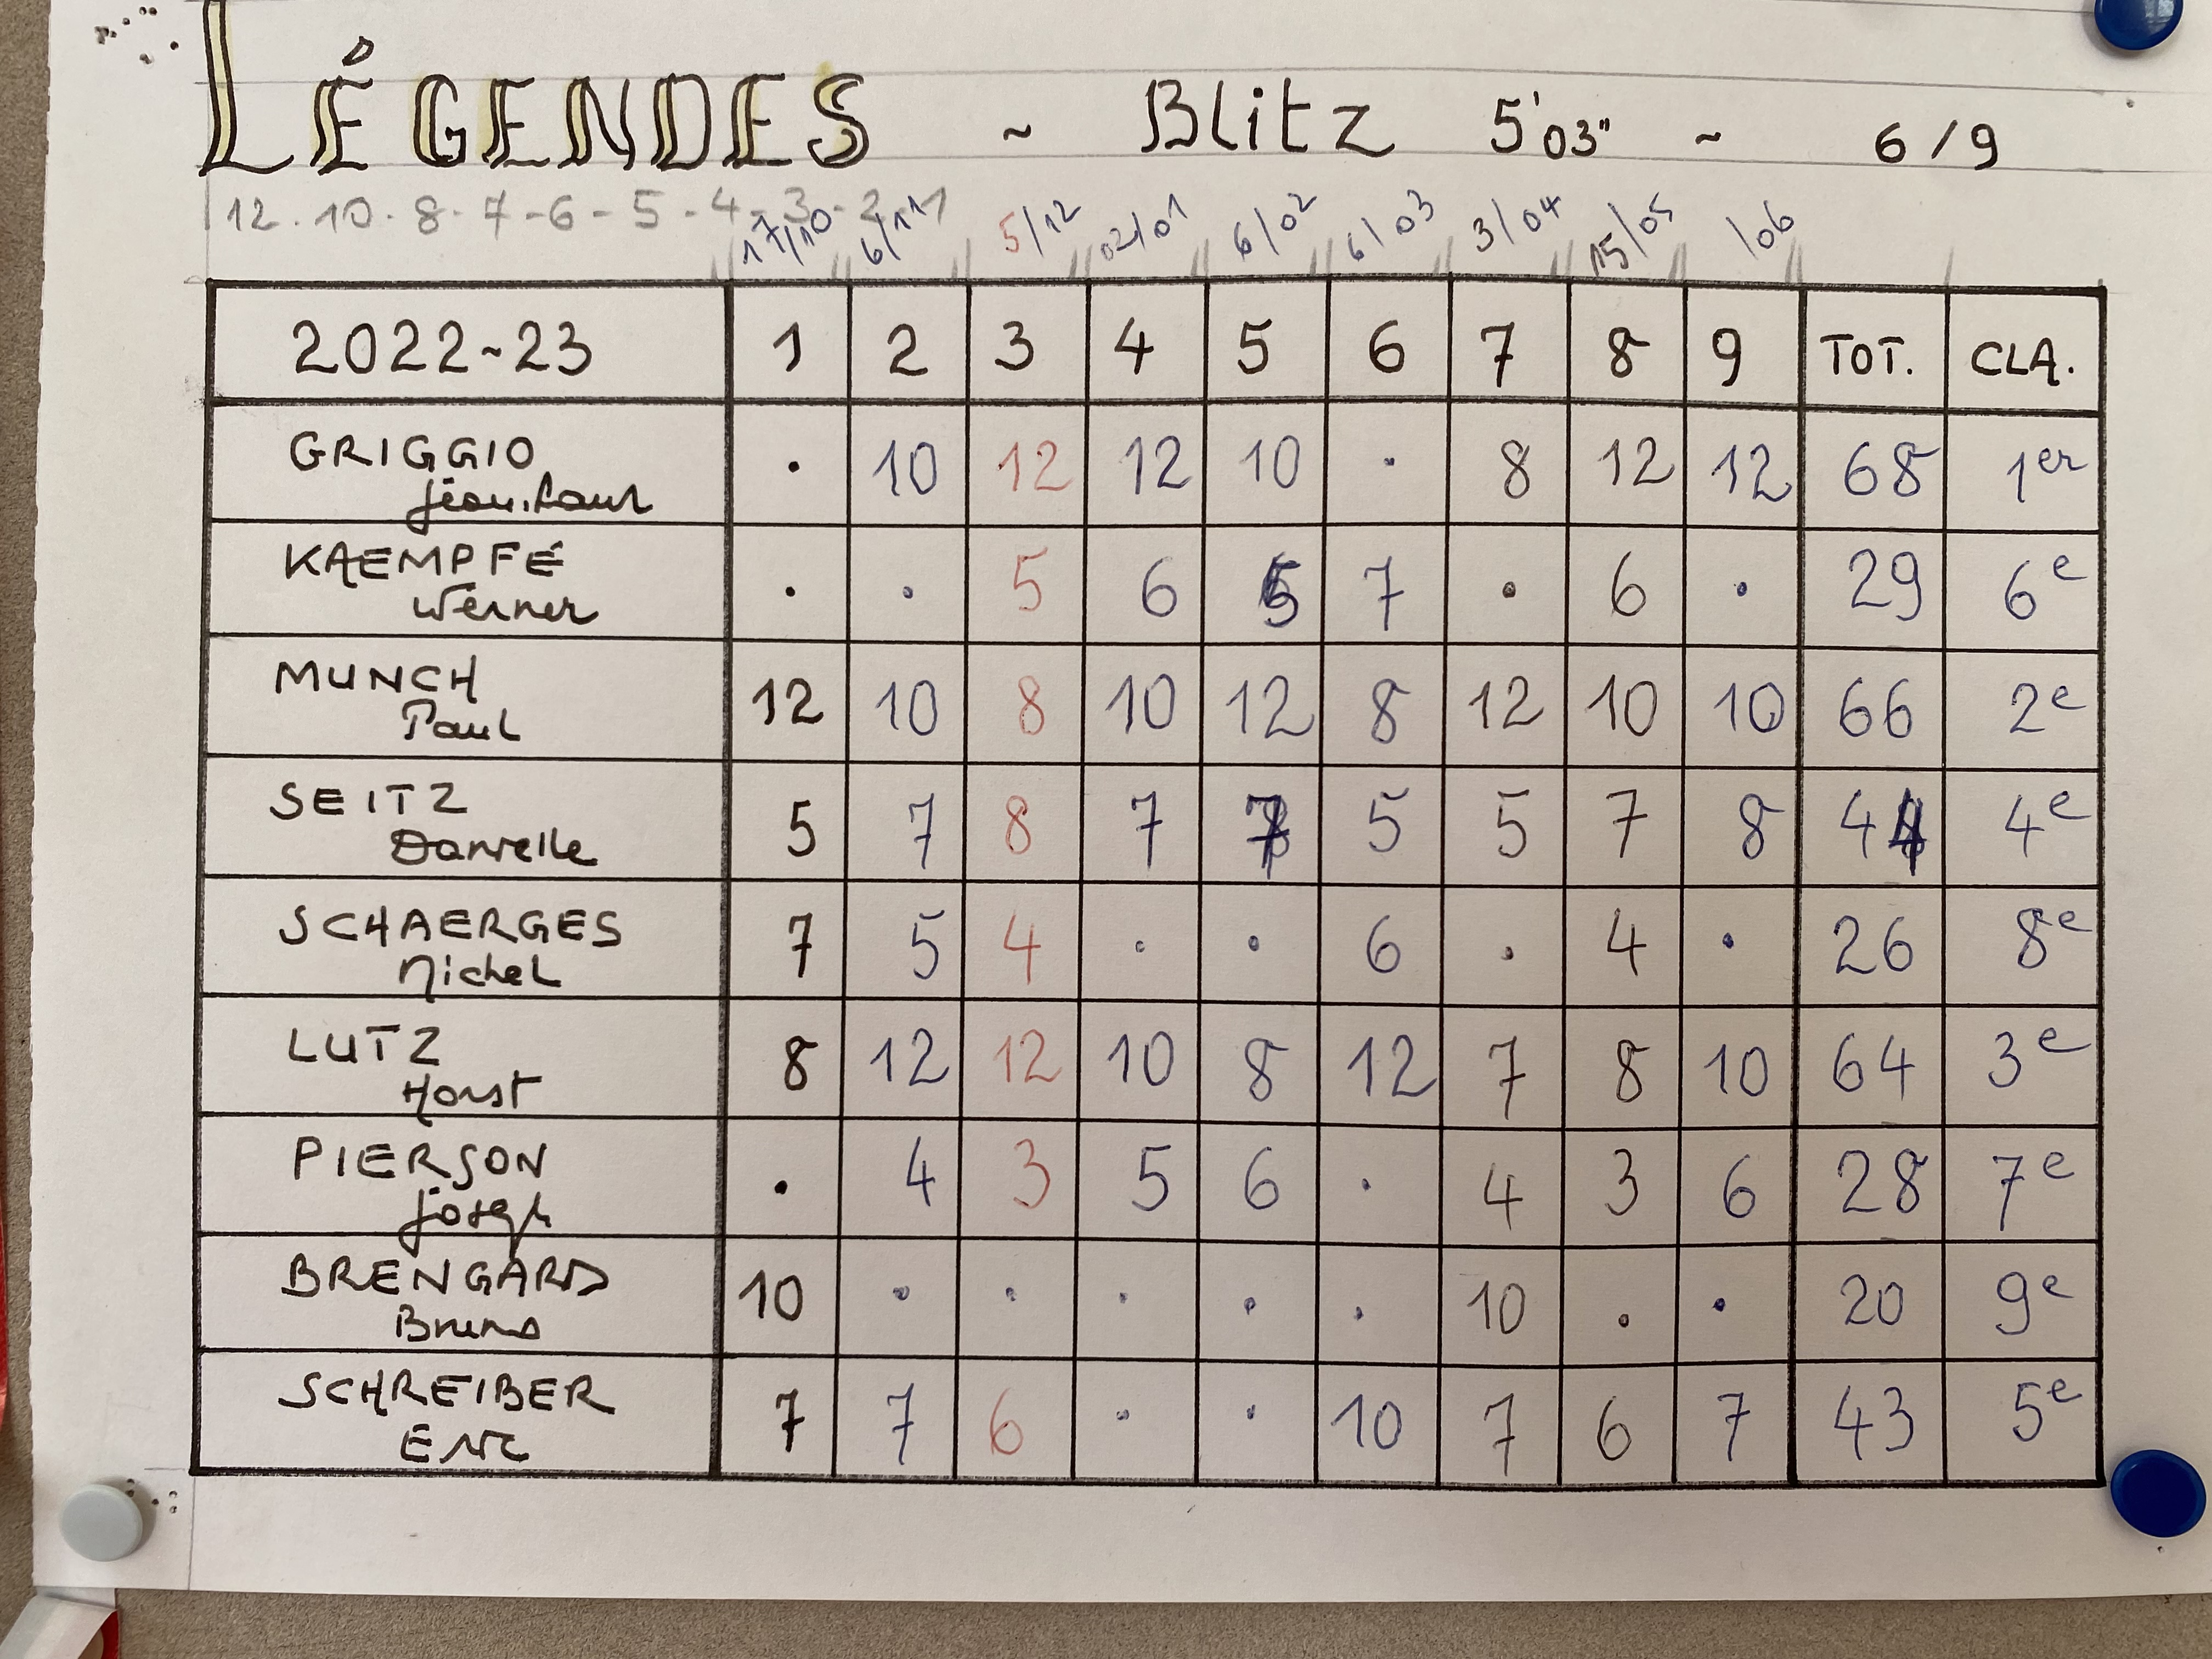 LÉGENDES ~ Blitz 5'03" ~ 6/9
12.10.8-7-6-5-4-3-2-1
17/10 6/11 5/12 02/01 6/02 6/03 3/04 15/05 /06
2022-23 1 2 3 4 5 6 7 8 9 TOT. CLA.
GRIGGIO Jean.Paul . 10 12 12 10 . 8 12 12 68 1er
KAEMPFÉ Werner . . 5 6 5 7 . 6 . 29 6e
MUNCH Paul 12 10 8 10 12 8 12 10 10 66 2e
SEITZ Danielle 5 7 8 7 7 5 5 7 8 44 4e
SCHAERGES Michel 7 5 4 . . 6 . 4 . 26 8e
LUTZ Horst 8 12 12 10 8 12 7 8 10 64 3e
PIERSON Joseph . 4 3 5 6 . 4 3 6 28 7e
BRENGARD Bruno 10 . . . . . 10 . . 20 9e
SCHREIBER Eric 7 7 6 . . 10 7 6 7 43 5e